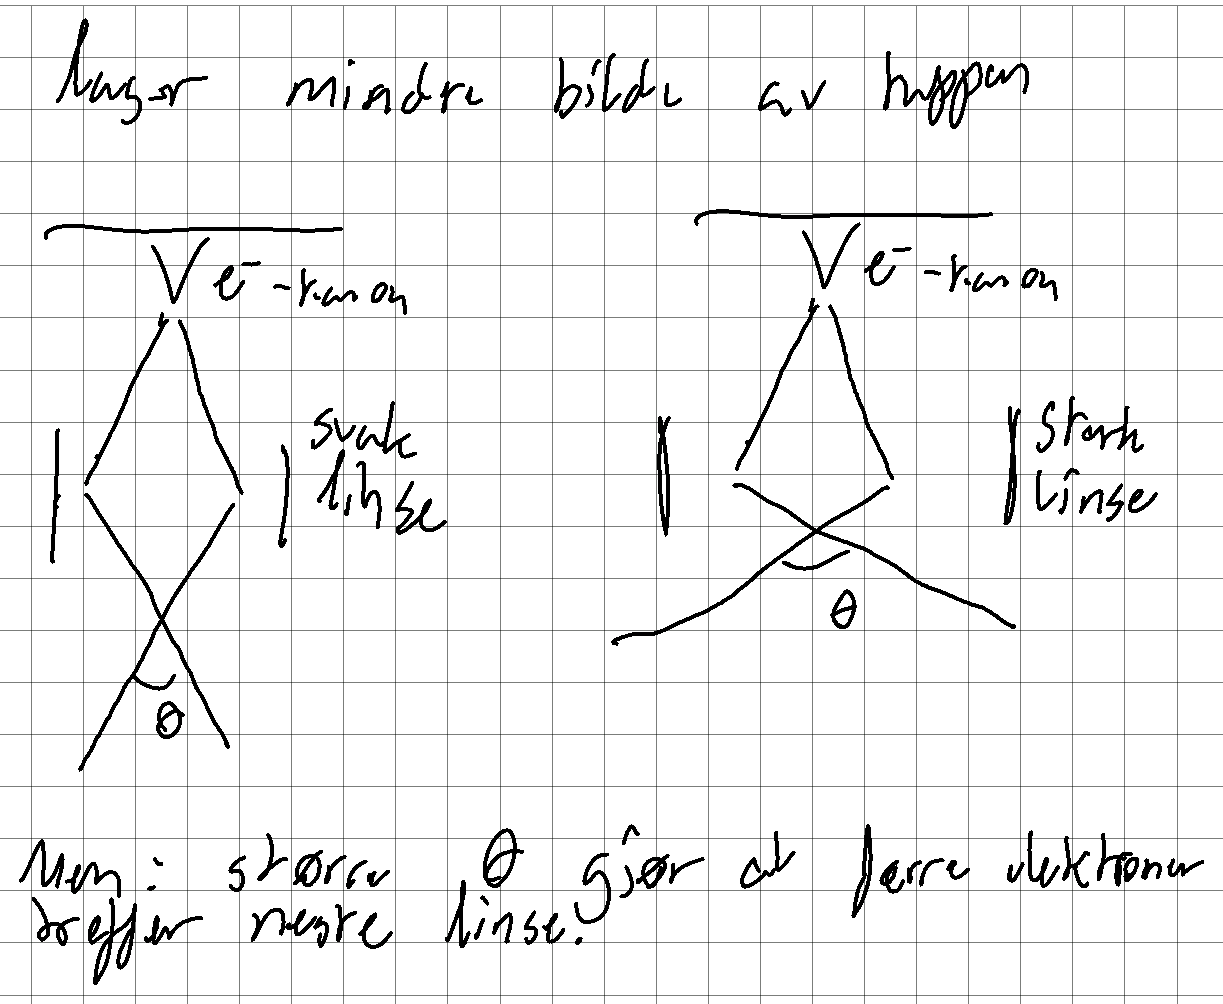 lager mindre bilde av tuppen
e⁻-kanon
e⁻-kanon
svak
linse
Sterk
linse
θ
θ
Men: større θ gjør at færre elektroner
treffer neste linse.